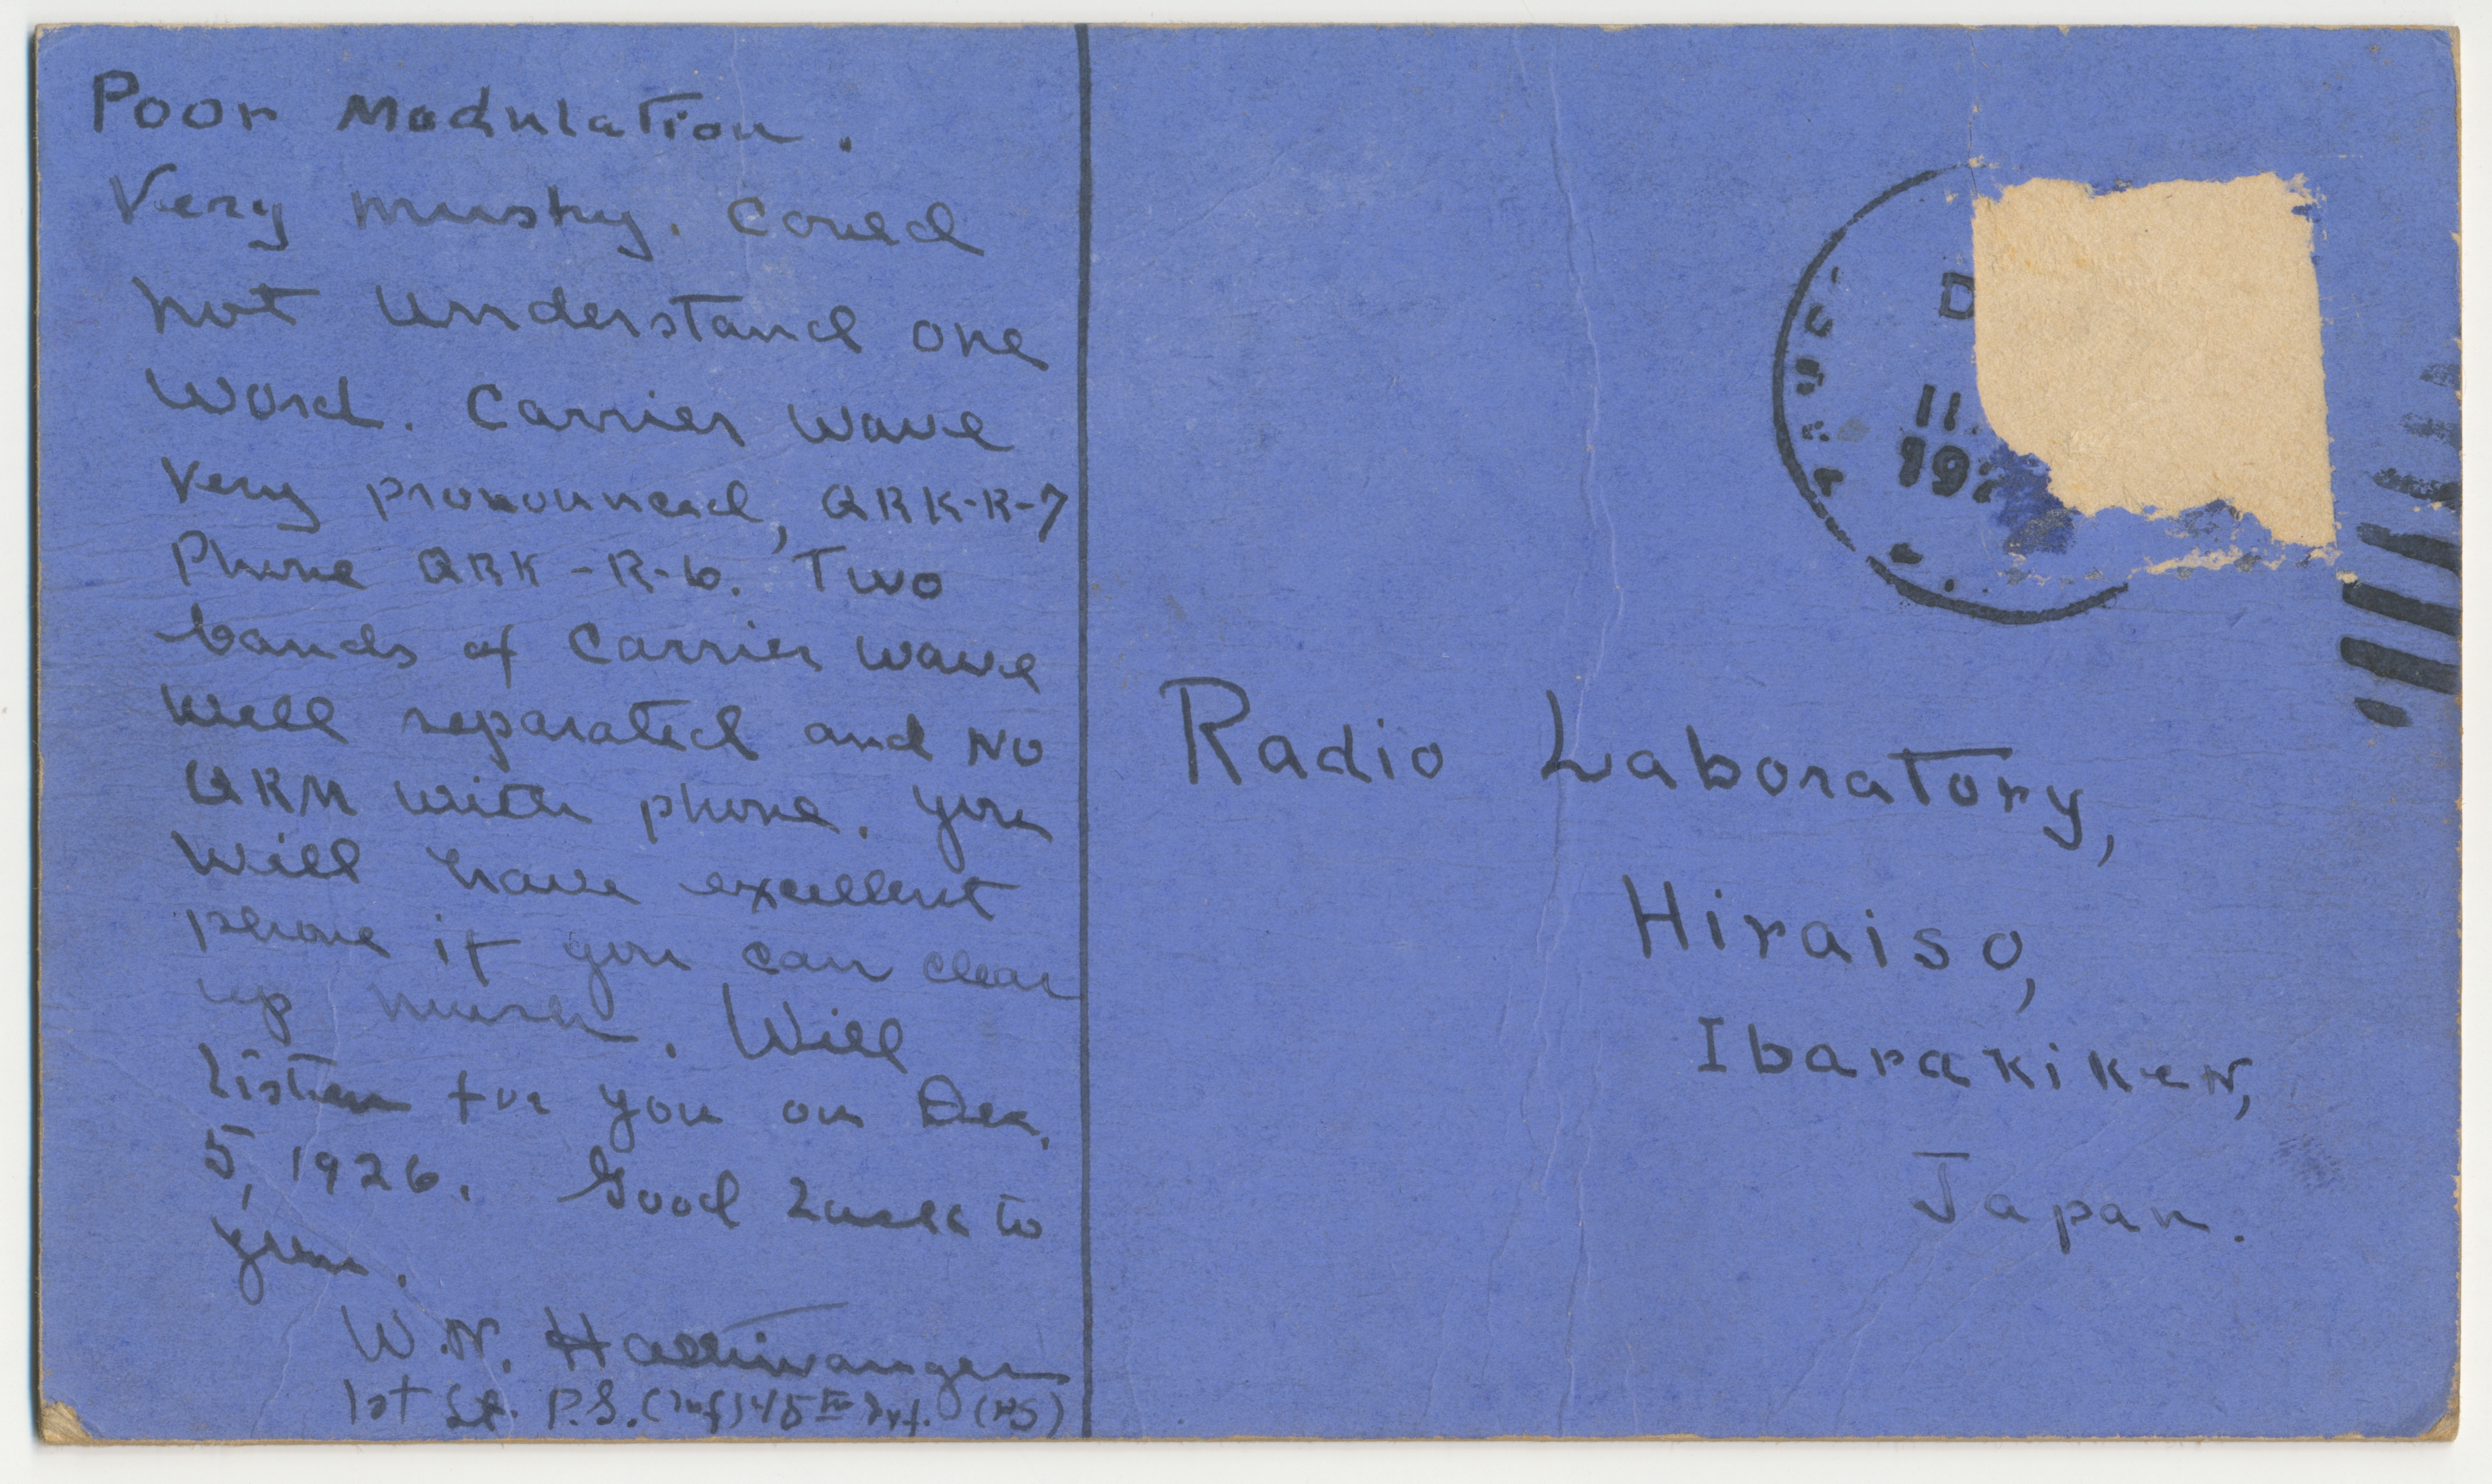 Poor Modulation.
Very mushy. Could
not understand one
word. Carrier wave
very pronounced, QRK-R-7
Phone QRK-R-6. Two
bands of carrier wave
well separated and no
QRM with phone. You
will have excellent
phone if you can clear
up mush. Will
listen for you on Dec.
5, 1926. Good Luck to
you.
W.N.
1st Lt. P.S. (Inf) 45th Inf. (PS)
D
11
192
Radio Laboratory,
Hiraiso,
Ibarakiken,
Japan.